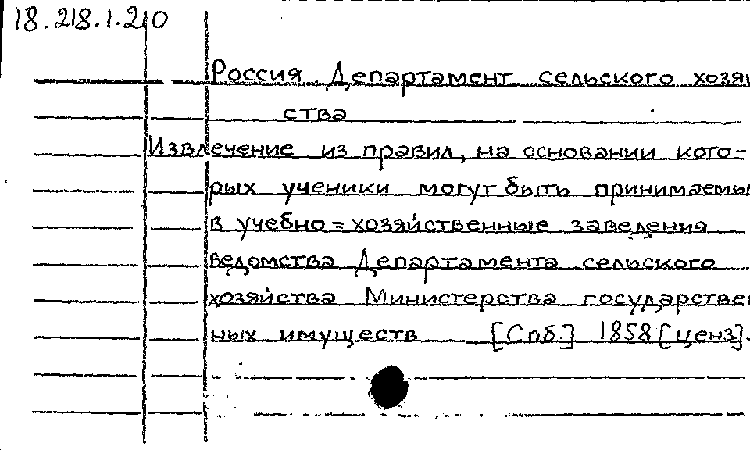 18.218.1.210
Россия Департамент сельского хозяй
ства
Извлечение из правил, на основании кото=
рых ученики могут быть принимаемы
в учебно=хозяйственные заведения
ведомства Департамента сельского
хозяйства Министерства государствен
ных имуществ [Спб.] 1858 [ценз].